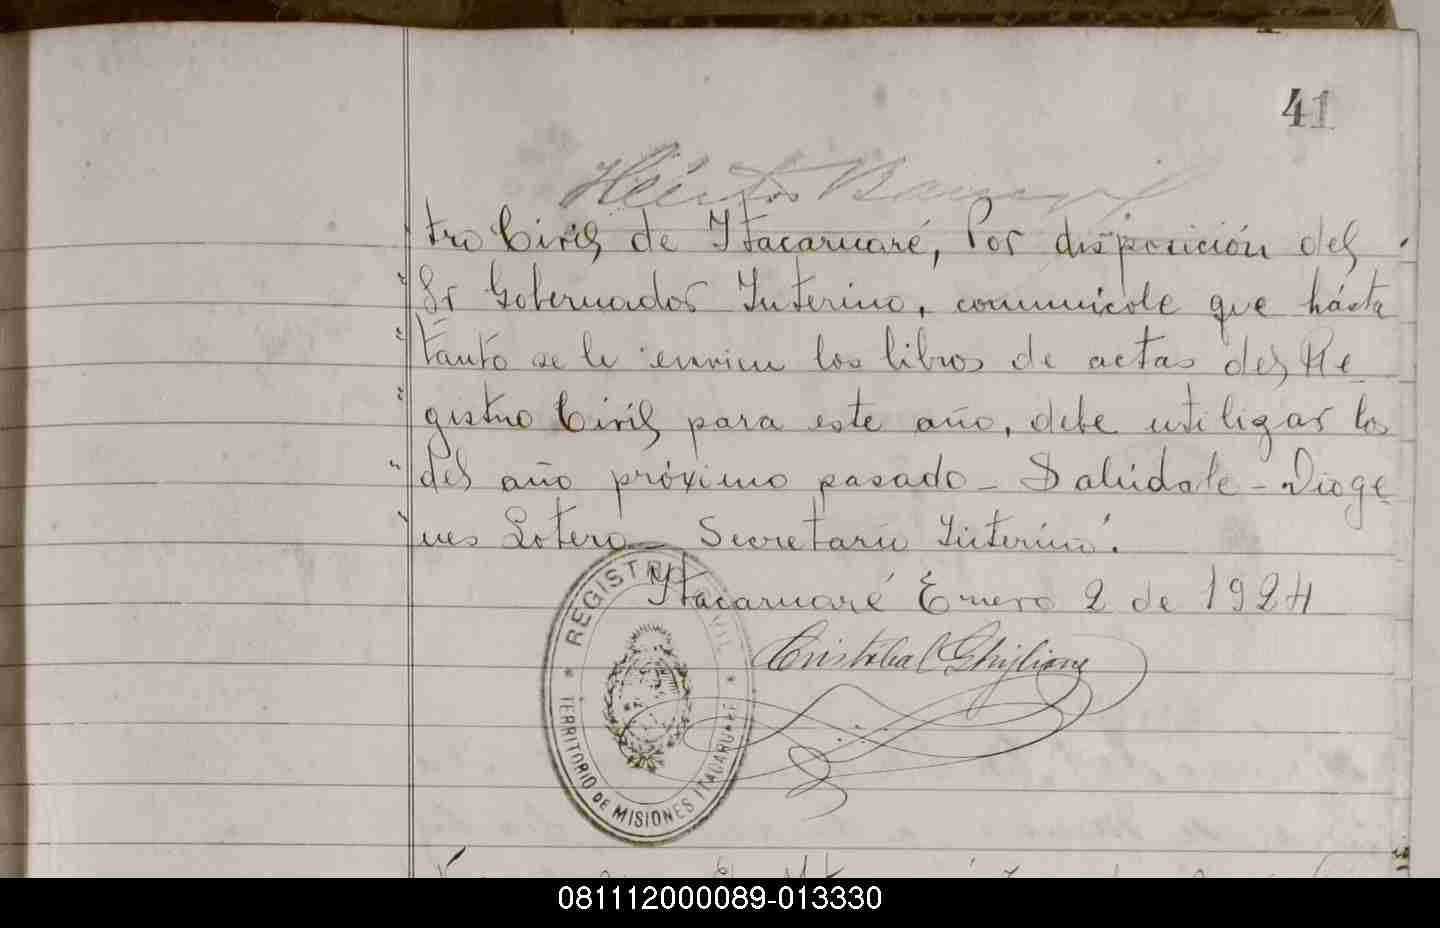 41
Héctor
tro Civil de Itacaruaré, Por disposición del
Sr Gobernador Interino, comunícole que hásta
tanto se le envien los libros de actas del Re-
gistro Civil para este año, debe utilizar los
del año próximo pasado - Salúdale - Dioge
nes Lotero - Secretario Interino.
Itacaruaré Enero 2 de 1924
Cristobal Ghiglione
REGISTRO CIVIL
TERRITORIO DE MISIONES ITACARUARE
081112000089-013330